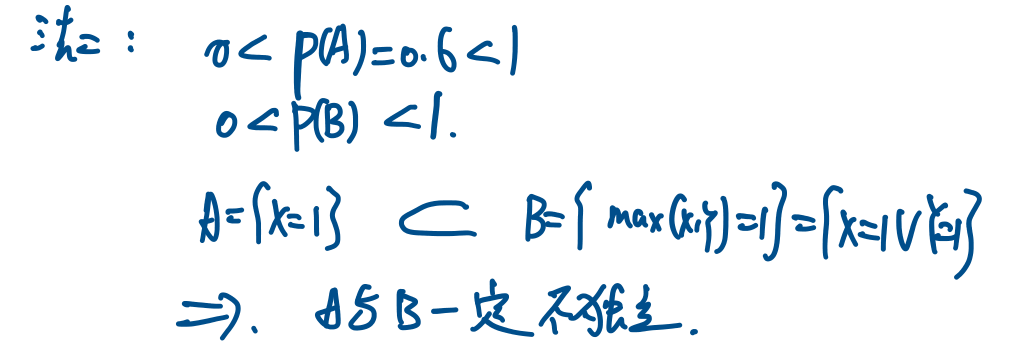 法二：0<P(A)=0.6<1
0<P(B)<1.
A={X=1} ⊂ B={max(X,Y)=1}={X=1∪Y=1}
⇒. A与B一定不独立.